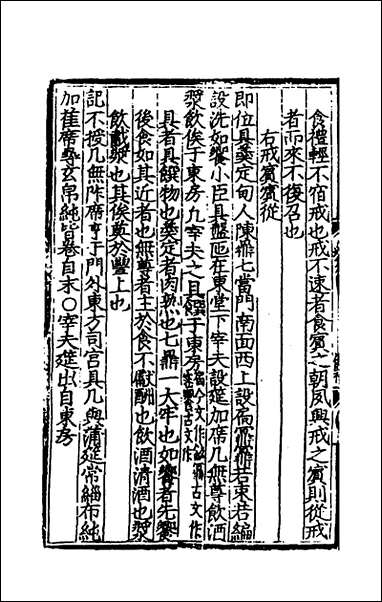 食禮輕不宿戒也戒不速者食賓之朝夙興戒之賓則從戒
者而來不復召也
右戒賓賓從
即位具羹定甸人陳鼎七當門南面西上設扃鼏鼏若束若編
設洗如饗小臣具盤匜在東堂下宰夫設筵加席几無尊飲酒
漿飲俟于東房凡宰夫之具饌于東房今文作古文作饗古文作
具者具饌物也羹定者肉熟也七鼎一大牢也如饗者先饗
後食如其近者也無尊者主於食不獻酬也飲酒清酒也漿
飲酨漿也其俟奠於豐上也
記不授几無阼席亨于門外東方司宮具几與蒲筵常緇布純
加萑席尋玄帛純皆卷自末○宰夫筵出自東房